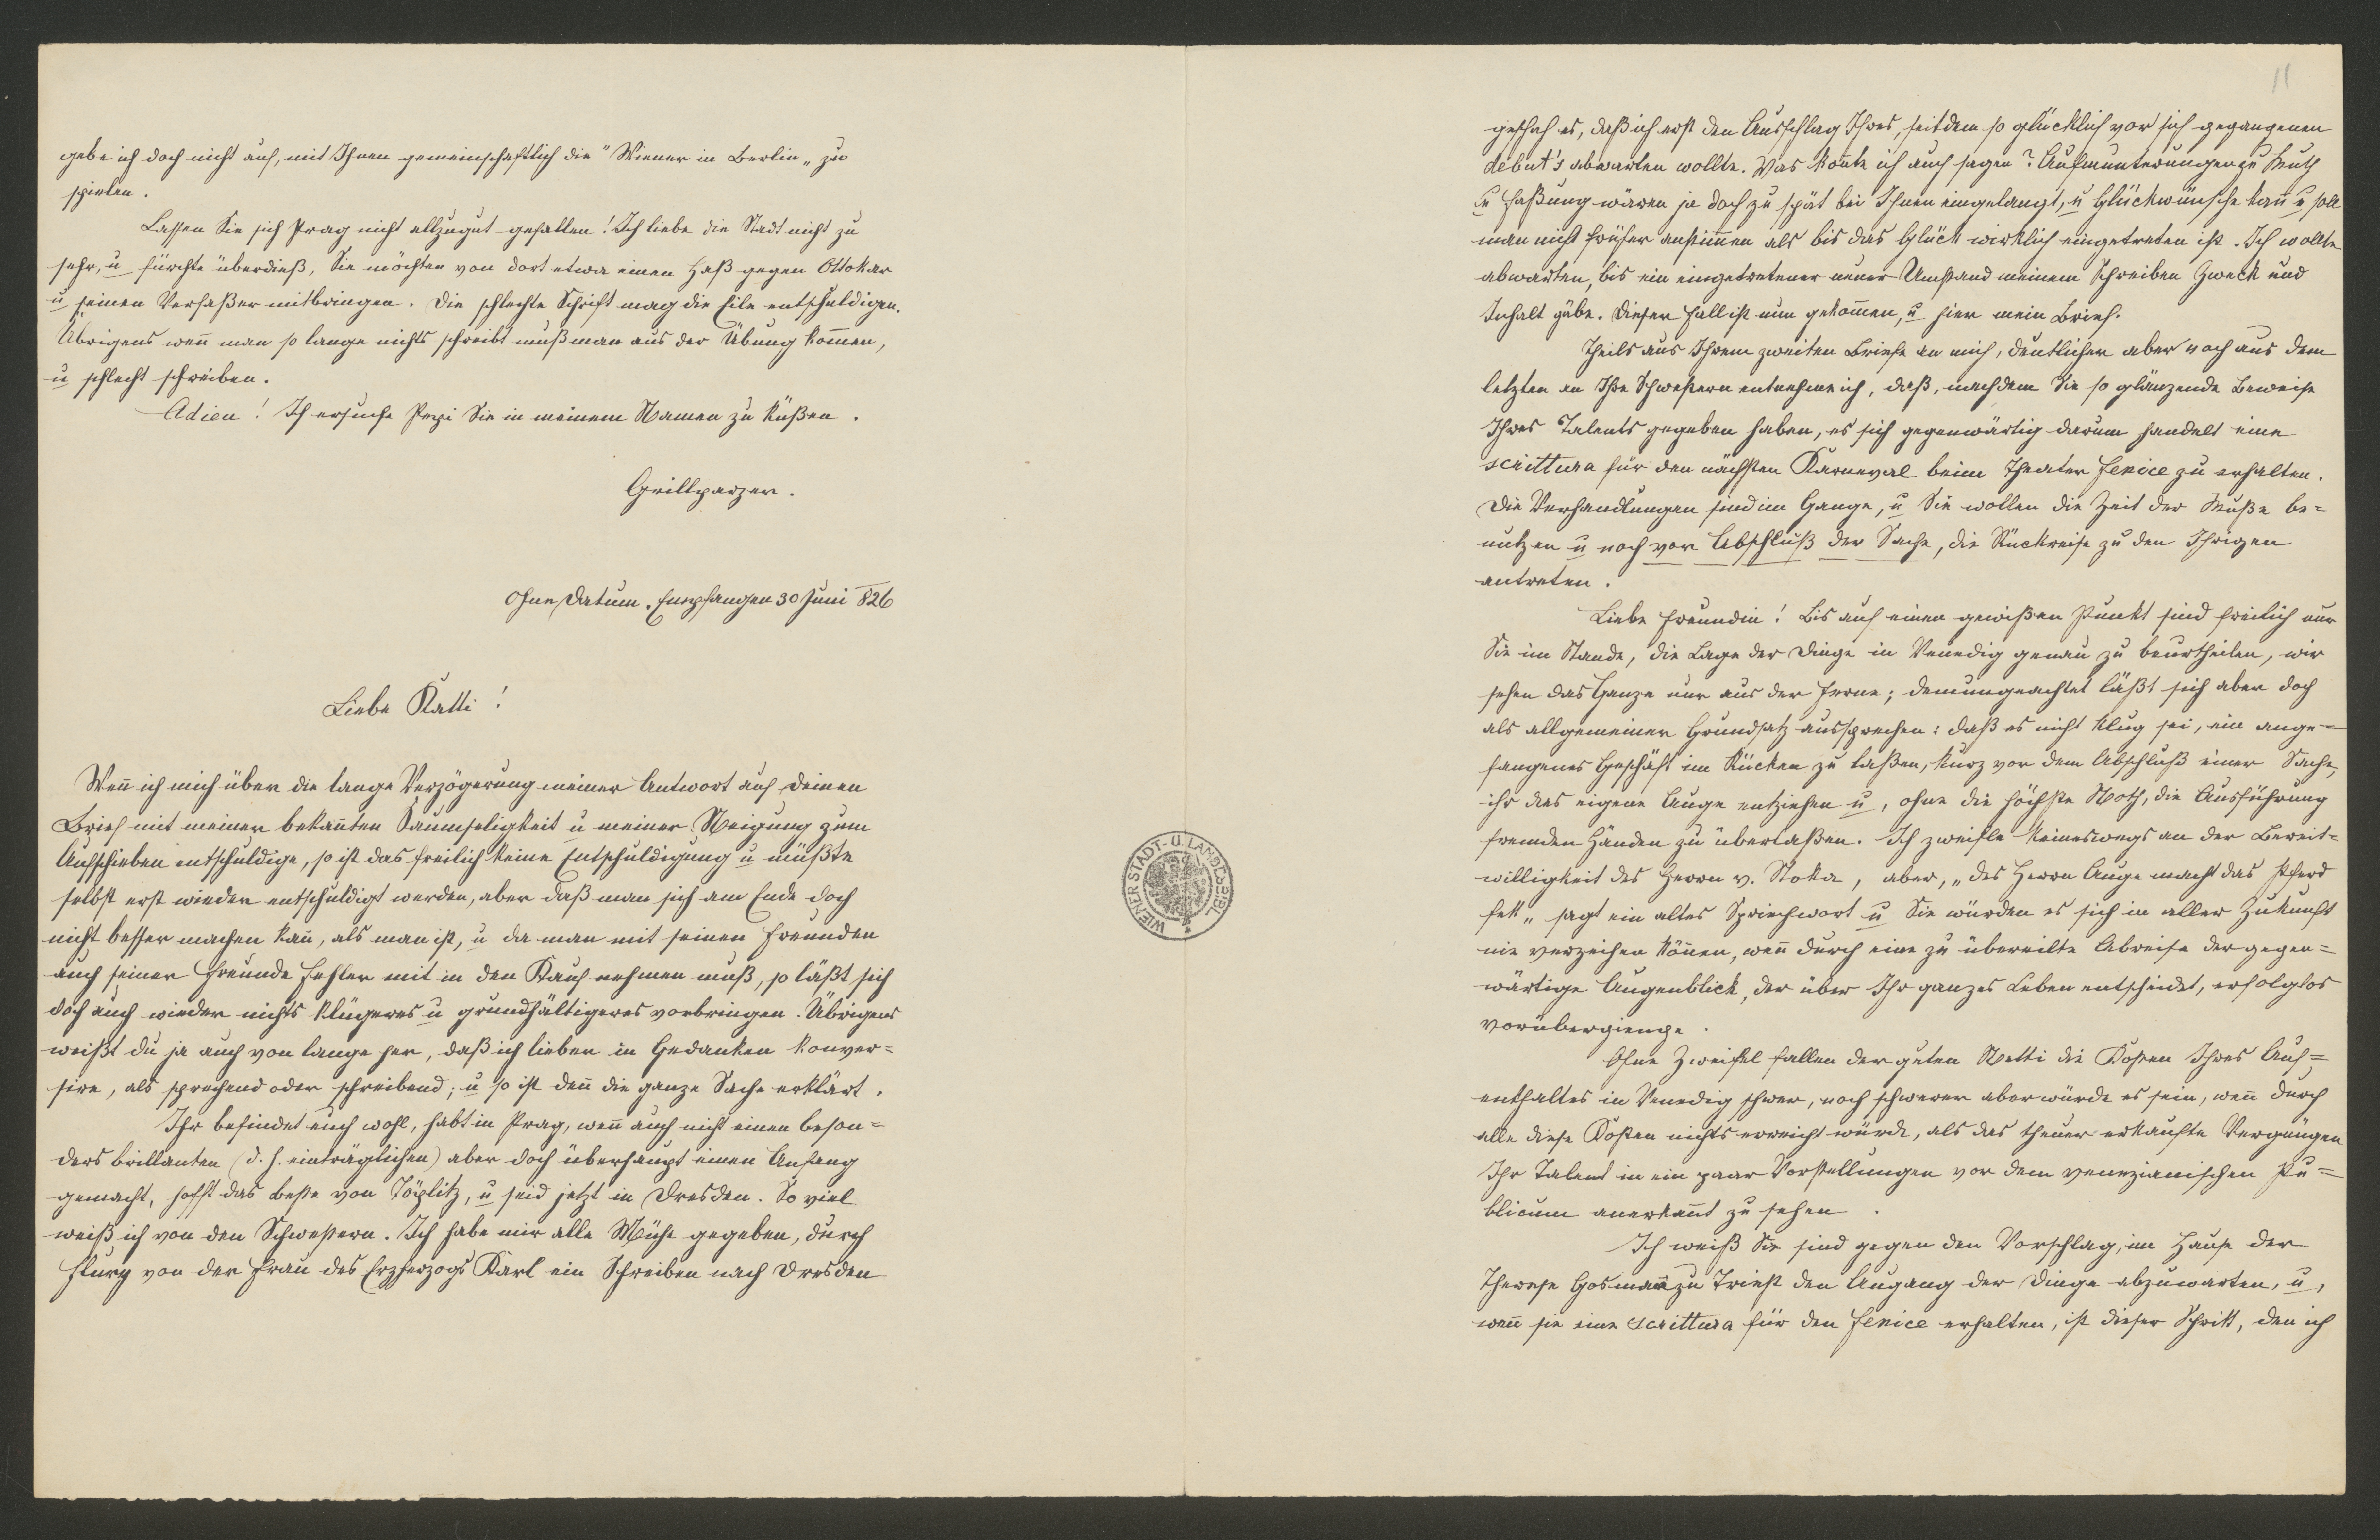 gebe ich doch nicht auf, mit Ihnen gemeinschaftlich die "Wiener in Berlin„ zu
spielen.
Lassen Sie sich Prag nicht allzugut gefallen! Ich liebe die Stadt nicht zu
sehr, u fürchte überdieß, Sie möchten von dort etwa einen Haß gegen Ottokar
u seinen Verfaßer mitbringen. Die schlechte Schrift mag die Eile entschuldigen.
Übrigens wen̅ man so lange nichts schreibt muß man aus der Übung kom̅en,
u schlecht schreiben.
Adieu! Ich ersuche Pepi Sie in meinem Namen zu küßen.
Grillparzer.
Ohne Datum. Empfangen 30 Juni 826
Liebe Katti!
Wen̅ ich mich über die lange Verzögerung meiner Antwort auf Deinen
Brief mit meiner bekan̅ten Saumseligkeit u meiner Neigung zum
Aufschieben entschuldige, so ist das freilich keine Entschuldigung u müßte
selbst erst wieder entschuldigt werden, aber daß man sich am Ende doch
nicht besser machen kan̅, als man ist, u da man mit seinen Freunden
auch seiner Freunde Fehler mit in den Kauf nehmen muß, so läßt sich
doch auch wieder nichts klügeres u grundhältigeres vorbringen. Übrigens
weißt du ja auch von lange her, daß ich lieber in Gedanken konver=
sire, als sprechend oder schreibend; u so ist den̅ die ganze Sache erklärt.
Ihr befindet euch wohl, habt in Prag, wen̅ auch nicht einen beson=
ders brillanten (d. h. einträglichen) aber doch überhaupt einen Anfang
gemacht, hofft das Beste von Töplitz, u seid jetzt in Dresden. So viel
weiß ich von den Schwestern. Ich habe mir alle Mühe gegeben, durch
von der Frau des Erzherzogs Karl ein Schreiben nach Dresden
WIENER STADT- U. LANDESBIBL.
11
geschah es, daß ich erst den Ausschlag Ihres, seitdem so glücklich vor sich gegangenen
debut's abwarten wollte. Was kon̅te ich auch sagen? Aufmunterungen zu Muth
u Faßung wären ja doch zu spät bei Ihnen eingelangt, u Glückwünsche kan̅ u soll
man nicht früher anstim̅en als bis das Glück wirklich eingetreten ist. Ich wollte
abwarten, bis ein eingetretener neuer Umstand meinem Schreiben Zweck und
Inhalt gäbe. Dieser Fall ist nun gekom̅en, u hier mein Brief.
Theils aus Ihrem zweiten Briefe an mich, deutlicher aber noch aus dem
letzten an Ihre Schwestern entnehme ich, daß, nachdem Sie so glänzende Beweise
Ihres Talents gegeben haben, es sich gegenwärtig darum handelt eine
scrittura für den nächsten Karneval beim Theater Fenice zu erhalten.
Die Verhandlungen sind im Gange, u Sie wollen die Zeit der Muße be=
nutzen u noch vor Abschluß der Sache, die Rückreise zu den Ihrigen
antreten.
Liebe Freundin! Bis auf einen gewißen Punkt sind freilich nur
Sie im Stande, die Lage der Dinge in Venedig genau zu beurtheilen, wir
sehen das Ganze nur aus der Ferne; demungeachtet läßt sich aber doch
als allgemeiner Grundsatz aussprechen: daß es nicht klug sei, ein ange=
fangenes Geschäft im Rücken zu laßen, kurz vor dem Abschluß einer Sache,
ihr das eigene Auge entziehen u, ohne die höchste Noth, die Ausführung
fremden Händen zu überlaßen. Ich zweifle keineswegs an der Bereit=
willigkeit des Herrn v. Stoka, aber, „des Herrn Auge macht das Pferd
fett„ sagt ein altes Sprichwort u Sie würden es sich in aller Zukunft
nie verzeihen kön̅en, wen̅ durch eine zu übereilte Abreise der gegen=
wärtige Augenblick, der über Ihr ganzes Leben entscheidet, erfolglos
vorübergienge.
Ohne Zweifel fallen der guten Netti die Kosten Ihres Auf=
enthaltes in Venedig schwer, noch schwerer aber würde es sein, wen̅ durch
alle diese Kosten nichts erreicht würde, als das theuer erkaufte Vergnügen
Ihr Talent in ein paar Vorstellungen vor dem venezianischen Pu=
blicum anerkan̅t zu sehen.
Ich weiß Sie sind gegen den Vorschlag, im Hause der
Therese Gosman̅ zu Triest den Ausgang der Dinge abzuwarten, u,
wen̅ sie eine scrittura für den Fenice erhalten, ist dieser Schritt, den ich